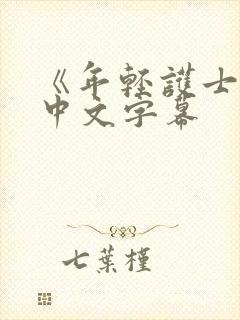 《年輕護士
中文字幕
七葉槿